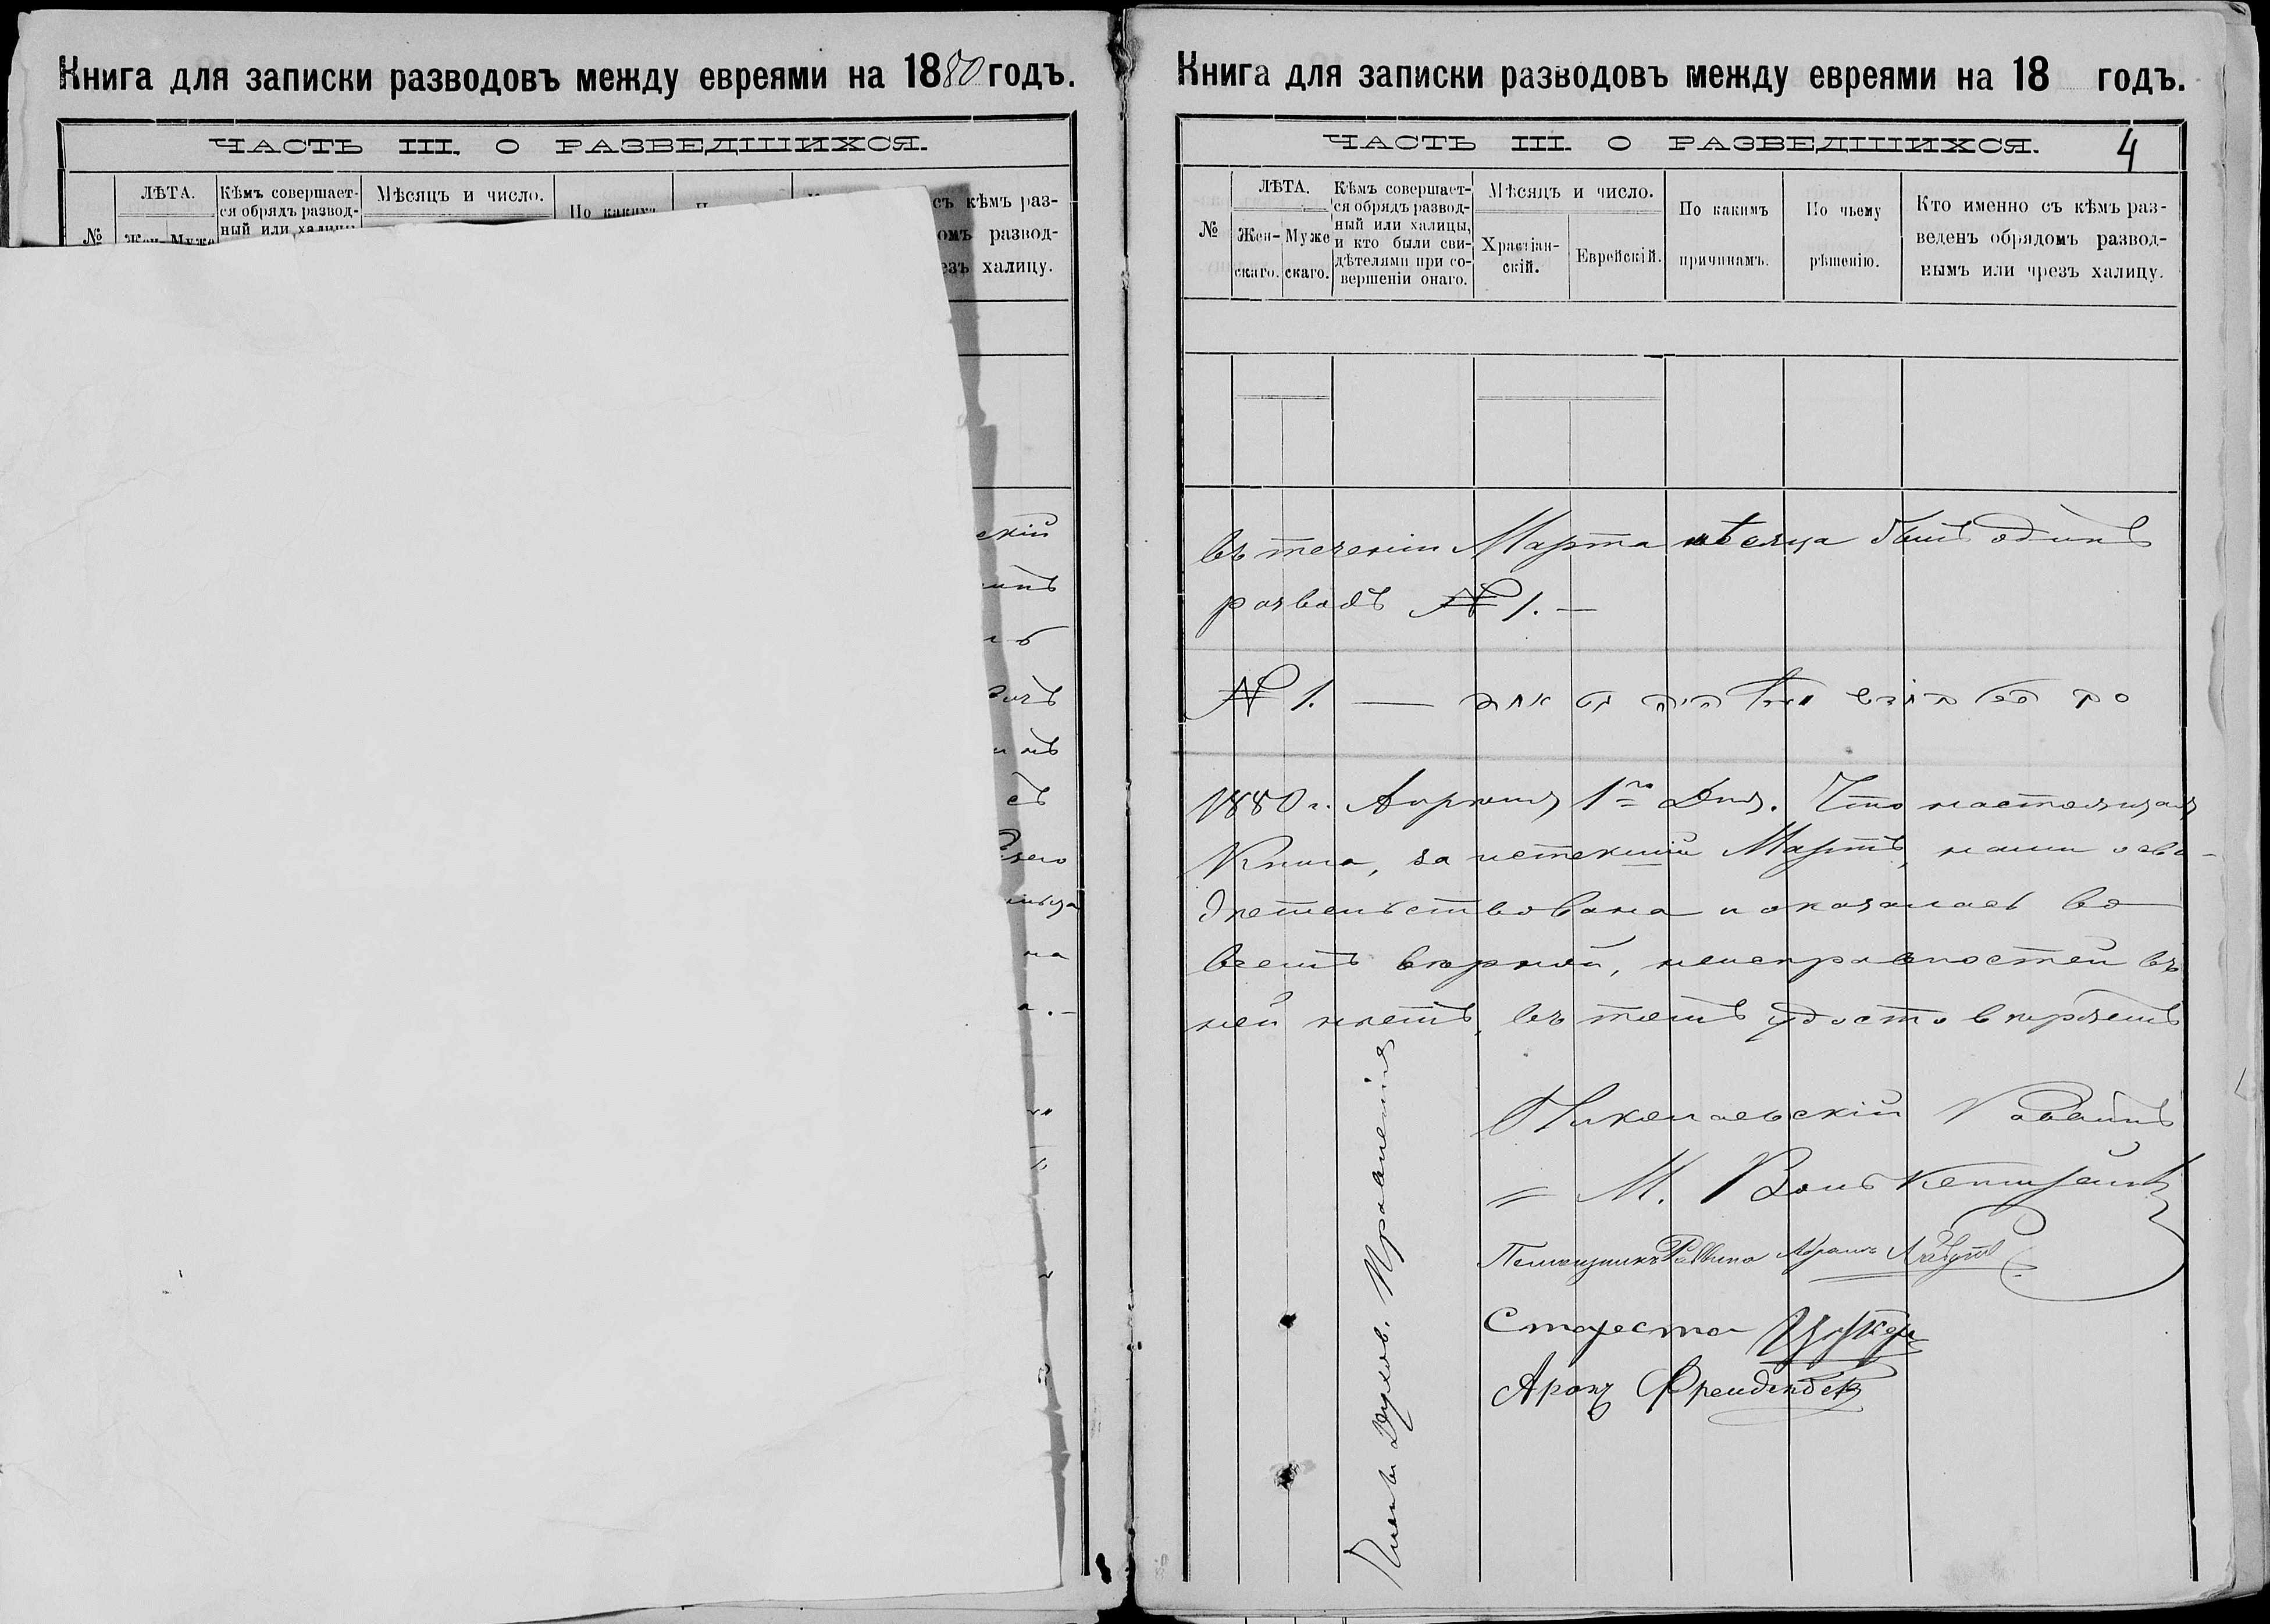 Книга для записки разводовъ между евреями на 1880 годъ.
ЧАСТЬ III. О РАЗВЕДШИХСЯ.
№
ЛѢТА.
Жен-
Муже
Кѣмъ совершает-
ся обрядъ развод-
ный или халицы
Мѣсяцъ и число.
По какимъ
съ кѣмъ раз-
омъ развод-
езъ халицу.
Книга для записки разводовъ между евреями на 18 годъ.
ЧАСТЬ III. О РАЗВЕДШИХСЯ.
4
№
ЛѢТА.
Жен-
скаго.
Муже
скаго.
Кѣмъ совершает-
ся обрядъ развод-
ный или халицы,
и кто были сви-
дѣтелями при со-
вершеніи онаго.
Мѣсяцъ и число.
Христіан-
скій.
Еврейскій.
По какимъ
причинамъ.
По чьему
рѣшенію.
Кто именно съ кѣмъ раз-
веденъ обрядомъ развод-
нымъ или чрезъ халицу.
въ теченіи Марта мѣсяца былъ одинъ
разводъ № 1. —
№ 1. —
1880 г. Апрѣля 1го Дня. Что настоящая
Книга, за истекшій Мартъ, нами осви-
дѣтельствована и оказалась во
всемъ вѣрной, неисправностей въ
ней нѣтъ, въ томъ удостовѣряемъ
Николаевскій Раввинъ
М.
Помощникъ Раввина Абрамъ
Староста
Аронъ
Членъ Духов. Правленія